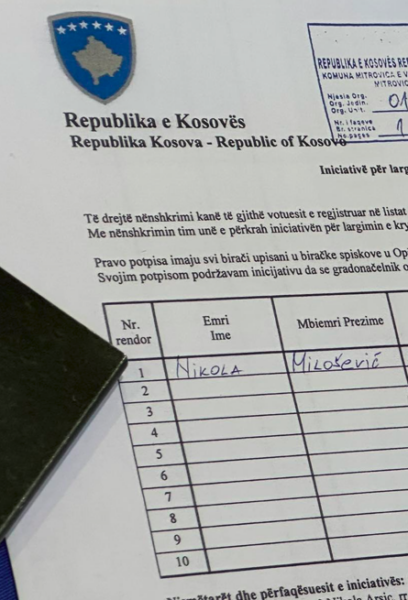 Republika e Kosovës
Republika Kosova - Republic of Kosovo
REPUBLIKA E KOSOVËS
KOMUNA MITROVICA E V
MITROVIC
Njesia Org.
Org. Jedin.
Org. Unit.
01
Nr. i faqeve
Br. stranica
No. pages
1
Iniciativë për larg
Të drejtë nënshkrimi kanë të gjithë votuesit e regjistruar në listat
Me nënshkrimin tim unë e përkrah iniciativën për largimin e kry
Pravo potpisa imaju svi birači upisani u biračke spiskove u Op
Svojim potpisom podržavam inicijativu da se gradonačelnik o
Nr. rendor
Emri Ime
Mbiemri Prezime
1 NIKOLA MILOŠEVIĆ
2
3
4
5
6
7
8
9
10
dhe përfaqësuesit e iniciativës:
Arsic,